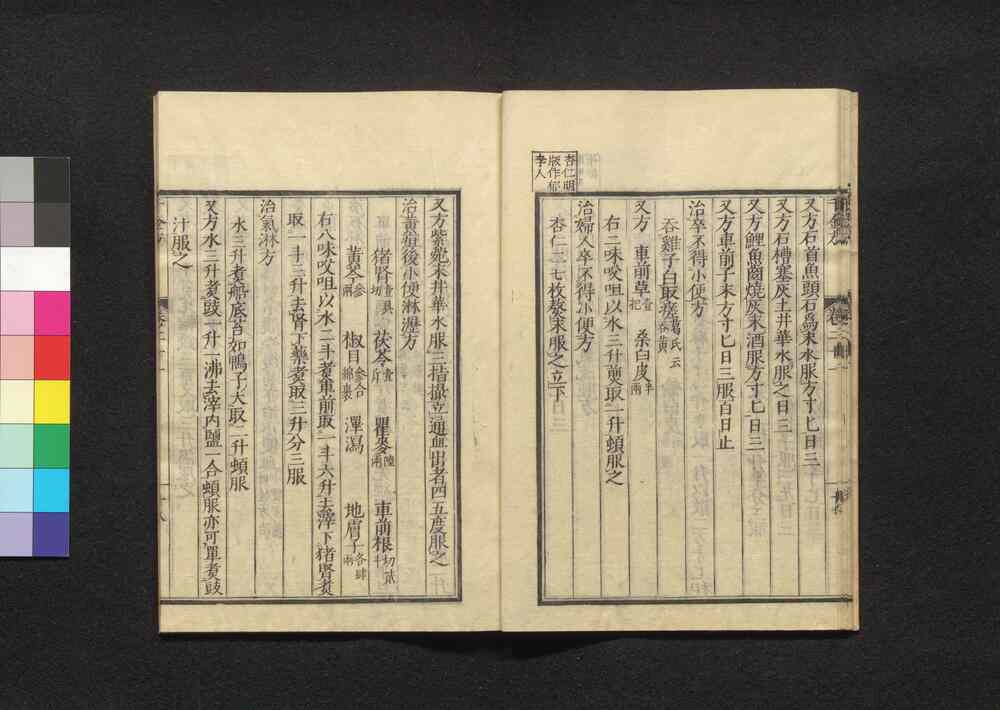 又方石首魚頭石爲末水服方寸匕日三
又方石槽塞灰土井華水服之日三
又方鯉魚齒燒灰末酒服方寸匕日三
又方車前子末方寸匕日三服百日止
治卒不得小便方
吞雞子白取瘥葛氏云吞黃
又方 車前草壹把 桒白皮半兩
右二味㕮咀以水三升煎取一升頓服之
治婦人卒不得小便方
杏仁二七枚熬末服之立下
杏仁明
版作郁
李人
又方紫菀末井華水服三指撮立通血出者四五度服之
治黃疸後小便淋瀝方
猪腎壹具切 茯苓壹斤 瞿麥陸兩 車前根切貳斗
黃芩參兩 椒目參合綿裹 澤瀉 地膚子各肆兩
右八味㕮咀以水二斗煮車前取一斗六升去滓下猪腎煮
取一斗三升去腎下藥煮取三升分三服
治氣淋方
水三升煮船底苔如鴨子大取二升頓服
又方水三升煮豉一升一沸去滓内鹽一合頓服亦可單煮豉
汁服之